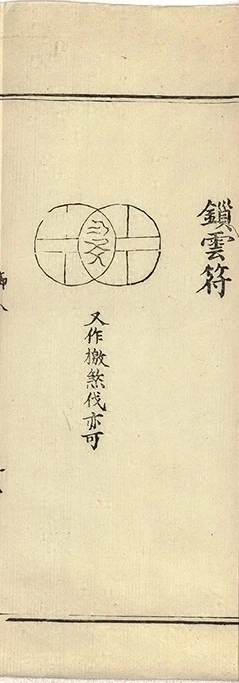 鎖雲符
又作檄煞伐亦可